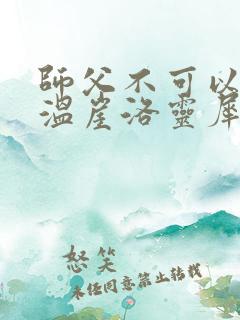 師父不可以
溫崖洛靈犀
怒笑
未經同意禁止轉載